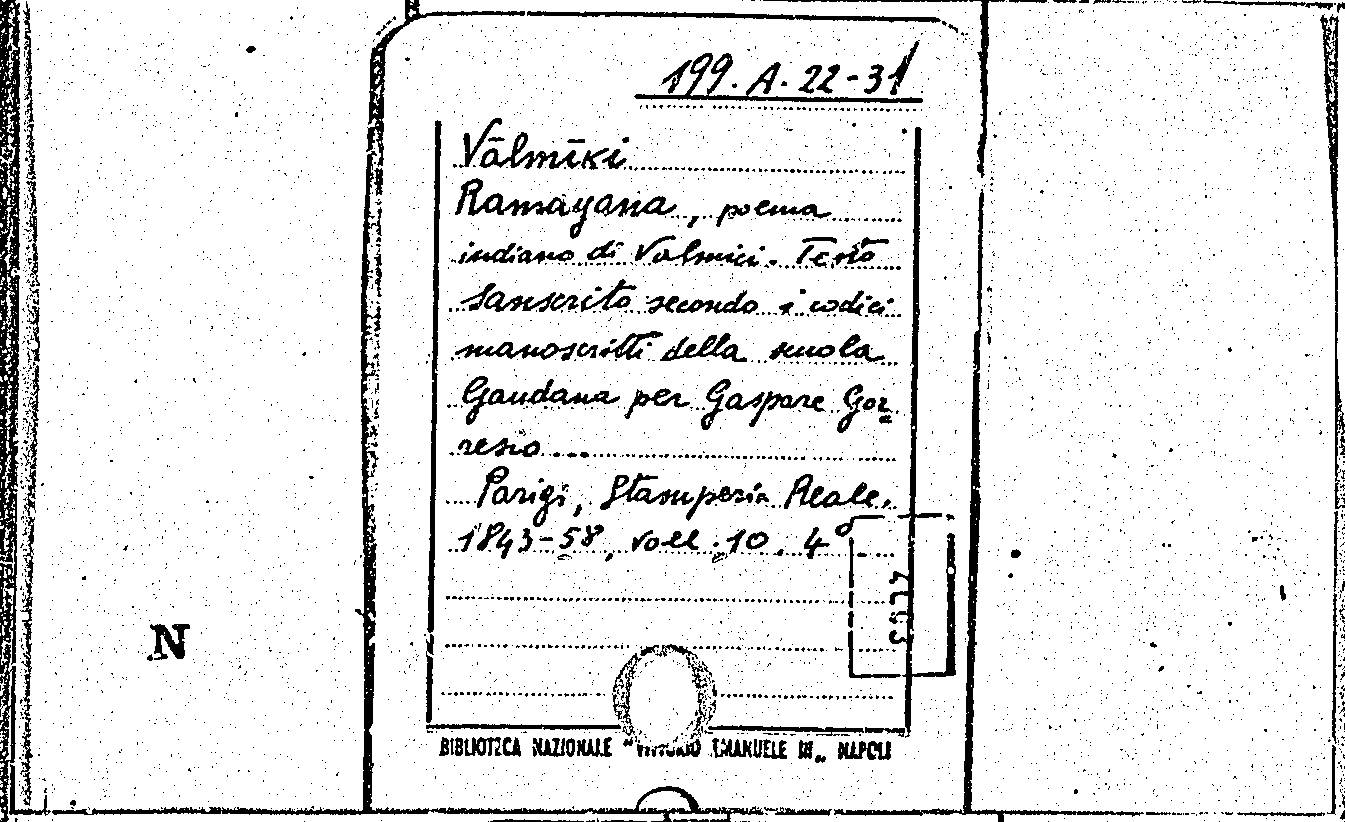 199. A. 22-31
Vālmīki
Ramayana, poema
indiano di Valmici. Testo
sanscrito secondo i codici
manoscritti della scuola
Gaudana per Gaspare Gor=
resio ...
Parigi, Stamperia Reale,
1843-58, voll. 10. 4°
N
BIBLIOTECA NAZIONALE "VITTORIO EMANUELE III„ NAPOLI